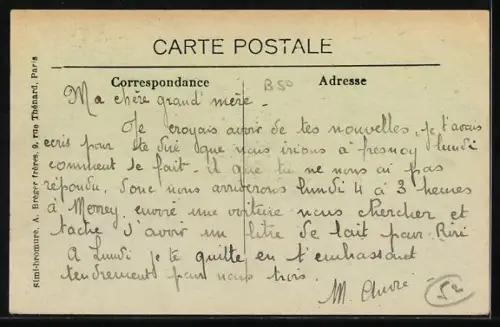 CARTE POSTALE
Correspondance
Adresse
B50
Ma chère grand' mère -
Je croyais avoir de tes nouvelles, je t'avais
ecris pour te dire que nous irions à Fresnoy lundi
comment se fait-il que tu ne nous ai pas
répondu, donc nous arriverons lundi 4 à 3 heures
à Merrey, envoie une voiture nous chercher et
tache d'avoir un litre de lait pour Riri
A Lundi je te quitte en t'embrassant
tendrement pour nous trois.
M.
Simi-bromure, A. Breger frères, 9, rue Thénard, Paris